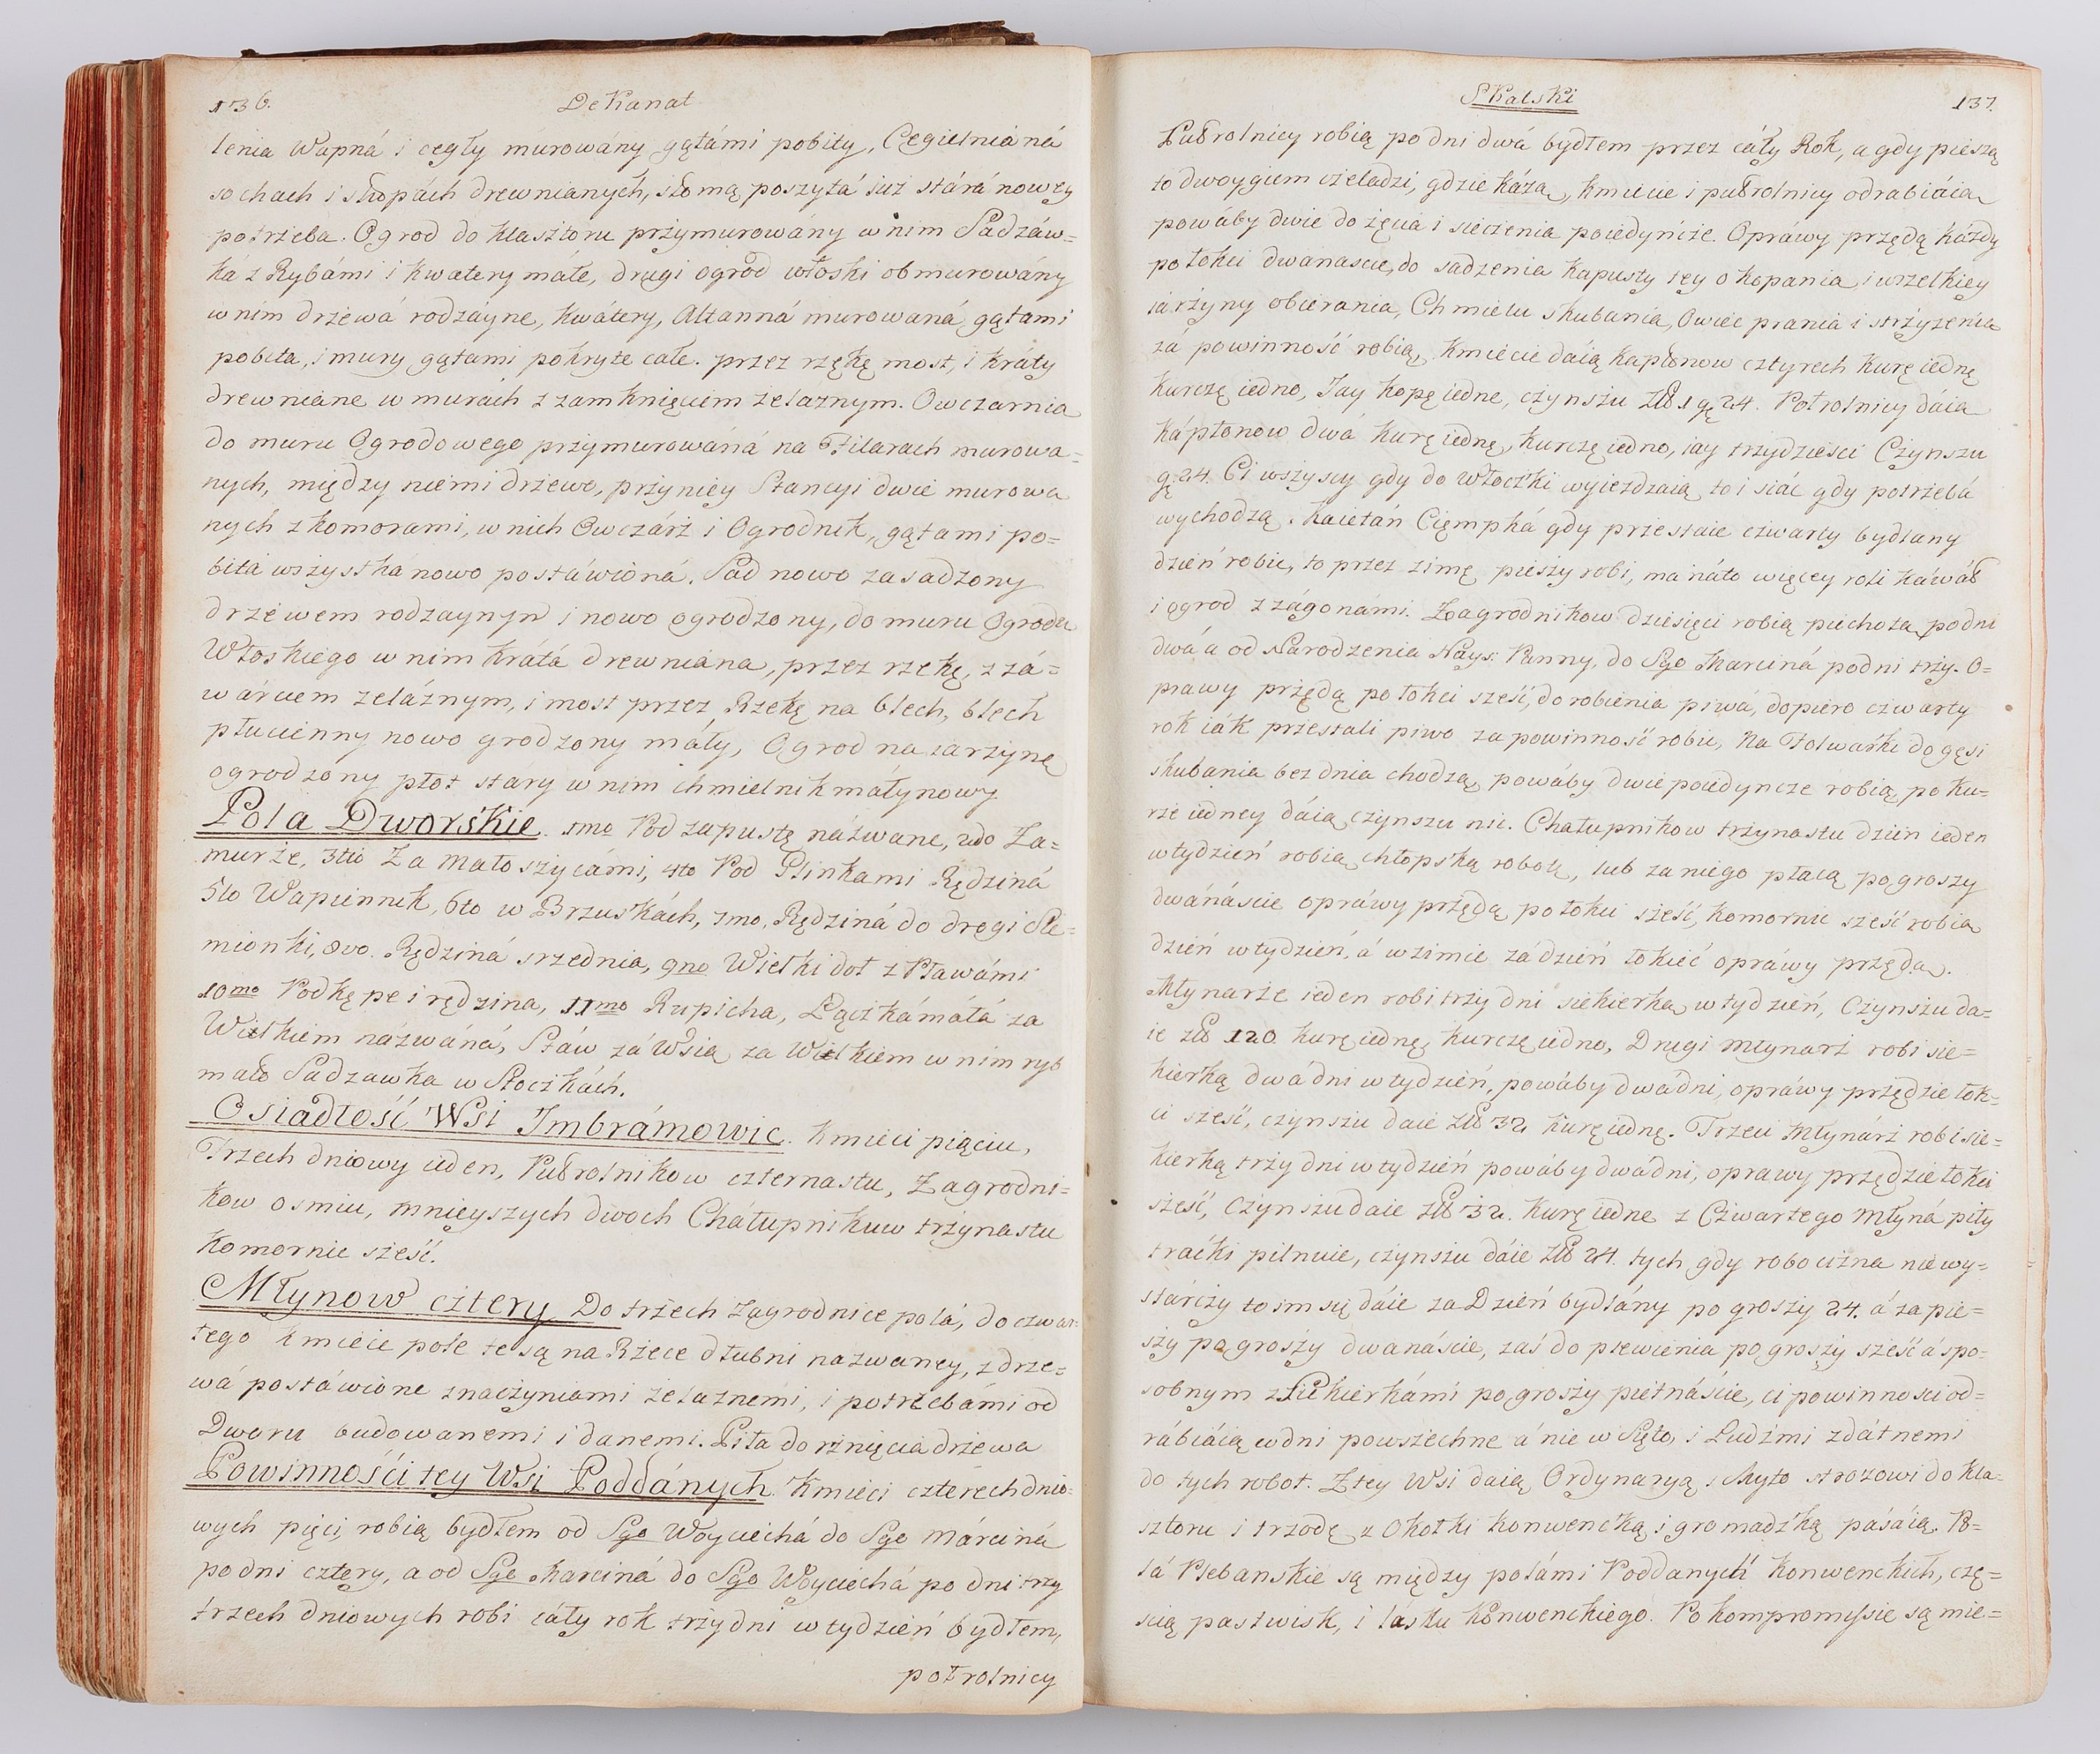 136.
Dekanat
lenia Wapná i cegły murowány gątámi pobity, Cegielnia ná
sochach i słopách drewnianych, słomą poszytá iuż stárá nowey
potrzeba. Ogrod do Klasztoru przymurowány w nim Sadzáw=
ká z Rybámi i Kwatery máłe, drugi ogrod włoski obmurowány
w nim drzewá rodzáyne, Kwátery, Altanná murowaná gątami
pobita, i mury gątami pokryte całe. przez rzękę most, i kráty
drewniáne w murách z zamknięciem żeláznym. Owczarnia
do muru Ogrodowego przymurowáná na Filarach murowa=
nych, między niemi drzewo, przy niey Stancyi dwie murowa
nych z komorami, w nich Owczárz i Ogrodnik, gątami po=
bita wszystká nowo postáwioná. Sad nowo zasadzony
drzewem rodzaynym i nowo ogrodzony, do muru Ogrodu
Włoskiego w nim Krátá drewniána, przez rzekę, z zá=
wárciem żeláznym, i most przez Rzekę na blech, blech
płucienny nowo grodzony máły, Ogrod na iarzynę
ogrodzony płot stary w nim chmielnik máły nowy
Pola Dworskie. 1mo Pod zapustę názwane, 2do Za=
murze, 3tio Za Małoszycámi, 4to Pod Glinkami Rędziná
5to Wapiennik, 6to w Brzuskách, 7mo. Rędziná do drogi Sle=
mionki, 8vo. Rędziná srzednia, 9no Wielki doł z Pławámi
10mo Podkępe i rędzina, 11mo Rupicha, Łączká máłá za
Wielkiem názwáná, Stáw zá Wsią za Wielkiem w nim ryb
mało Sadzawka w Stoczkách.
Osiadłość Wsi Imbrámowic. Kmieci pięciu,
Trzech dniowy ieden, Pułrolnikow czternastu, Zagrodni=
kow osmiu, mnieyszych dwoch Chałupnikuw trzynastu
Komornic sześć.
Młynow cztery Do trzech Zagrodnice polá, do czwar=
tego Kmiecie pole te są na Rzece dłubni nazwaney, z drze=
wá postáwione z naczyniami żelaznemi, i potrzebámi od
Dworu budowanemi i danemi. Piła do rznięcia drzewa
Powinności tey Wsi Poddánych. Kmieci czterech dnio=
wych pięci, robią bydłem od Sgo Woyciechá do Sgo Márciná
po dni cztery, a od Sgo Marciná do Sgo Woyciechá po dni trzy
trzech dniowych robi cáły rok trzy dni w tydzień bydłem,
połrolnicy
Skalski
137.
Pułrolnicy robią po dni dwá bydłem przez cáły Rok, a gdy pieszą
to dwoygiem czeladzi, gdzie káżą, kmiecie i pułrolnicy odrabiáią
powaby dwie do żęcia i sieczenia poiedyńcze. Opráwy przędą káżdy
po łokci dwanascie, do sadzenia kapusty tey okopania, i wszelkiey
iarzyny obierania, Chmielu skubania, Owiec prania i strzyżenia
zá powinność robią, Kmiecie daią Kapłonow cztyrech Kurę iednę
Kurczę iedno, Iay kopę iedne, czynszu Złł 1 gę 24. Połrolnicy dáią
Kápłonow dwá kurę iednę, kurczę iedno, iay trzydzieści Czynszu
gę 24. Ci wszyscy gdy do włoczki wyieżdzaią, to i siác gdy potrzebá
wychodzą. Kaietán Ciemphá gdy przestaie czwarty bydlany
dzień robic, to przez zimę pieszy robi, ma náto więcey roli káwáł
i ogrod z zágonámi. Zagrodnikow dziesięci robią piechotą po dni
dwá a od Narodzenia Nays: Panny, do Sgo Marciná po dni trzy. O=
prawy przędą po łokci sześć, do robienia piwá, dopiero czwarty
rok iák przestali piwo za powinność robic, Na Folwarki do gęsi
skubania bez dnia chodzą, powáby dwie poiedyncze robią, po Ku=
rze iedney dáią, czynszu nic. Chałupnikow trzynastu dzień ieden
w tydzień robią chłopską robotą, lub za niego płacą po groszy
dwánáscie opráwy przędą po łokci sześć, Komornic sześć robią
dzień w tydzień, á w zimie zá dzień łokieć opráwy przędą.
Młynarze ieden robi trzy dni siekierką w tydzień, Czynszu da=
ie złł 120 kurę iednę, kurczę iedno, Drugi Młynarz robi sie=
kierką dwá dni w tydzień, powáby dwá dni, opráwy przędzie łok=
ci sześć, czynszu daie złł 32 kurę iednę. Trzeci Młynárz robi sie=
kierką trzy dni w tydzień powáby dwá dni, oprawy przędzie łokci
sześć, Czynszu daie złł 32. Kurę iedne z Czwartego Młyná piły
traćki pilnuie, czynszu dáie złł 24. tych gdy robocizna nie wy=
stárczy to im się dáie za Dzień bydlány po groszy 24. á za pie=
szy po groszy dwanáście, zaś do plewienia po groszy sześć á spo=
sobnym z siekierkámi po groszy pietnáście, ci powinności od=
rábiáią w dni powszechne á nie w Sęto, i Ludźmi zdátnemi
do tych robot. Z tey Wsi daią Ordynaryą i Myto strozowi do Kla=
sztoru i trzodę z Okołki konwencką i gromadzką pásáią. Po=
lá Plebanskie są między polámi Poddanych Konwenckich, czę=
scią pastwisk, i lásku Konwenckiego. Po kompromissie są mie=